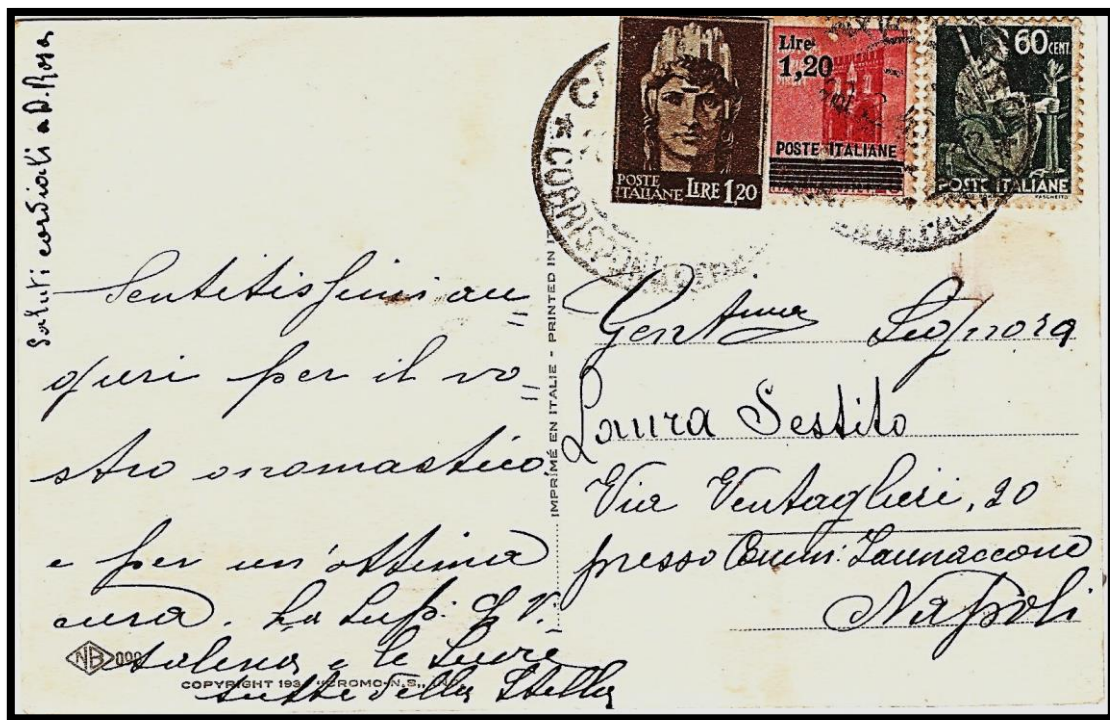 Saluti cordiali a D. Rosa
Sentitissimi au
guri per il vo
stro onomastico.
e per un'ottima
cura. La Sup. V.
e le Suore
tutte della Stella
NB
COPYRIGHT
IMPRIMÉ EN ITALIE - PRINTED IN
POSTE
ITALIANE LIRE 1,20
Lire
1,20
POSTE ITALIANE
60 CENT
POSTE ITALIANE
Gent.ma Signora
Laura Sestito
Via Ventaglieri, 20
presso Comm: Iannaccone
Napoli